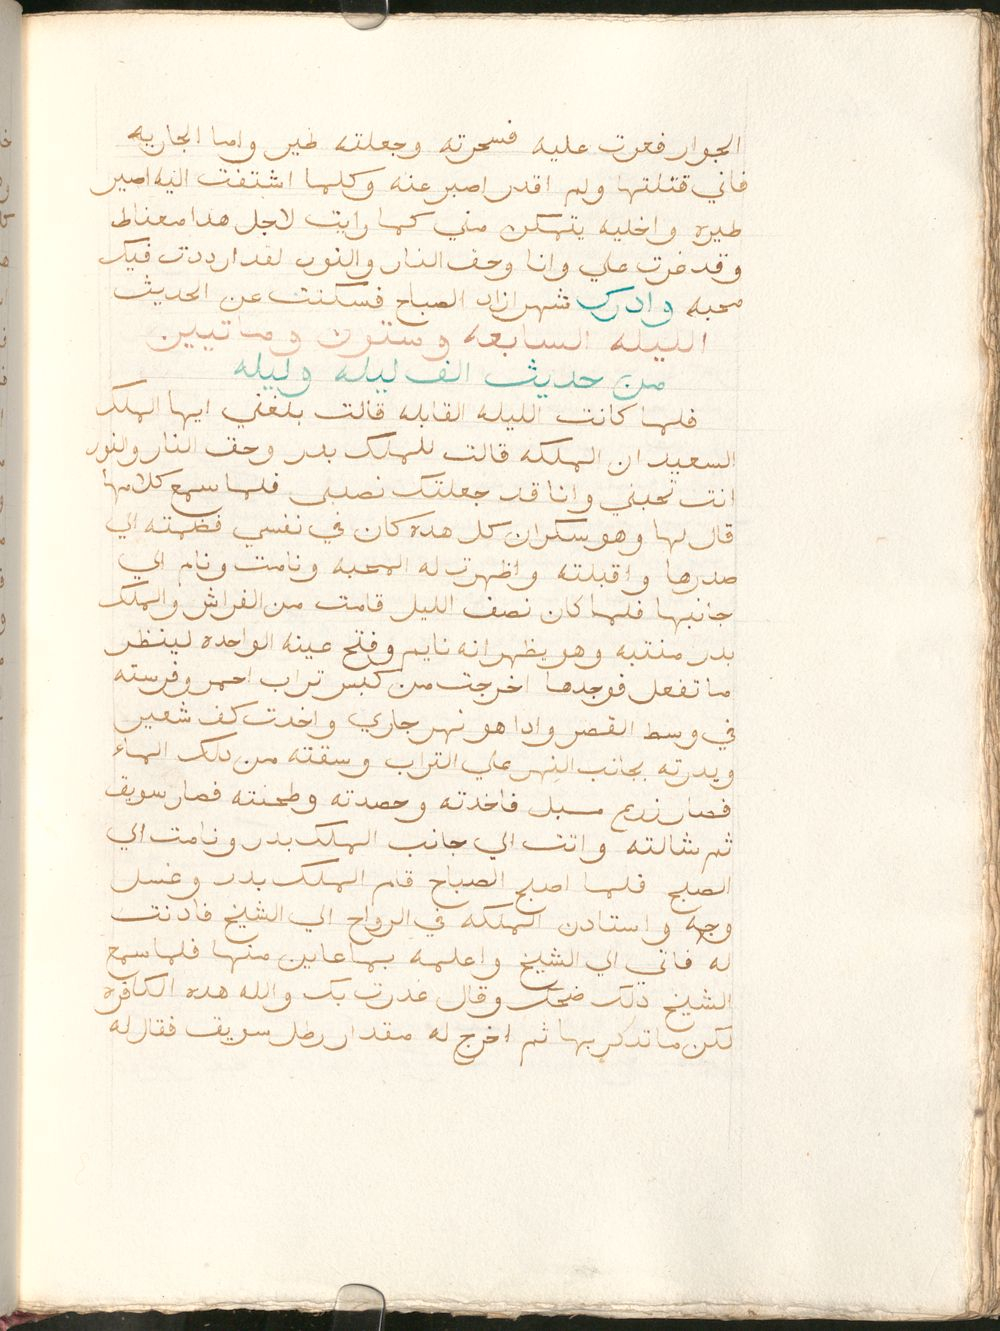 الجوار فغرت عليه فسحرته وجعلته طير واما الجاريه
فاني قتلتها ولم اقدر اصبر عنه وكلما اشتقت اليه اصير
طيره واخليه يتمكن مني كما رايت لاجل هدا مغتاظ
وقد غرت علي وانا وحق النار والنور لقد ازددت فيك
محبه وادرك شهرازاد الصباح فسكتت عن الحديث
الليله السابعه وستون وماتيين
من حديث الف ليله وليله
فلما كانت الليله القابله قالت بلغني ايها الملك
السعيد ان الملكه قالت للملك بدر وحق النار والنور
انت تحبني وانا قد جعلتك نصيبي فلما سمع كلامها
قال لها وهو سكران كل هده كان في نفسي فضمته الي
صدرها واقبلته واظهرت له المحبه ونامت ونام الي
جانبها فلما كان نصف الليل قامت من الفراش والملك
بدر منتبه وهو يظهر انه نايم وفتح عينه الواحده لينظر
ما تفعل فوجدها اخرجت من كيس تراب احمر وفرسته
في وسط القصر وادا هو نهر جاري واخدت كف شعير
وبدرته بجانب النهر علي التراب وسقته من دلك الماء
فصار زرع مسبل فاخدته وحصدته وطحنته فصار سويق
ثم شالته واتت الي جانب الملك بدر ونامت الي
الصبح فلما اصبح الصباح قام الملك بدر وغسل
وجهه واستادن الملكه في الرواح الي الشيخ فادنت
له فاتي الي الشيخ واعلمه بما عاين منها فلما سمع
الشيخ دلك ضحك وقال غدرت بك والله هده الكافره
لكن ما تدكر بها ثم اخرج له مقدار رطل سويق فقال له